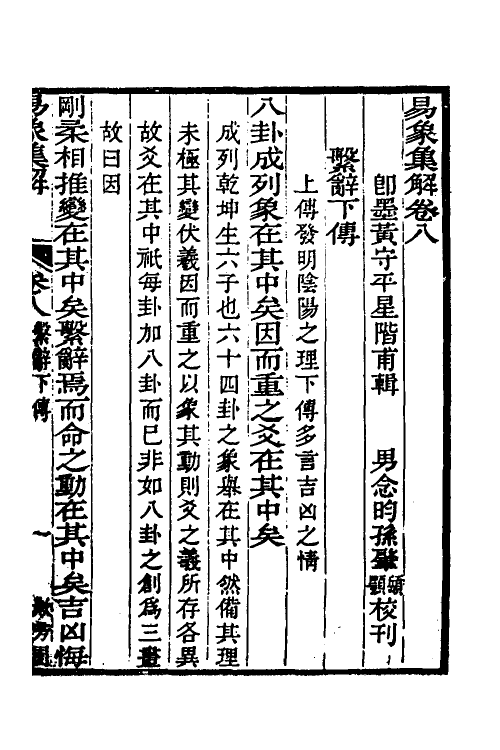 易象集解卷八
卽墨黃守平星階甫輯　男念昀孫肇𩔰顎校刊
繫辭下傳
上傳發明陰陽之理下傳多言吉凶之情
八卦成列象在其中矣因而重之爻在其中矣
成列乾坤生六子也六十四卦之象舉在其中然備其理
未極其變伏羲因而重之以象其動則爻之義所存各異
故爻在其中祇每卦加八卦而已非如八卦之創爲三畫
故曰因
剛柔相推變在其中矣繫辭焉而命之動在其中矣吉凶悔
易象集解　卷八繫辭下傳　一　漱芳園